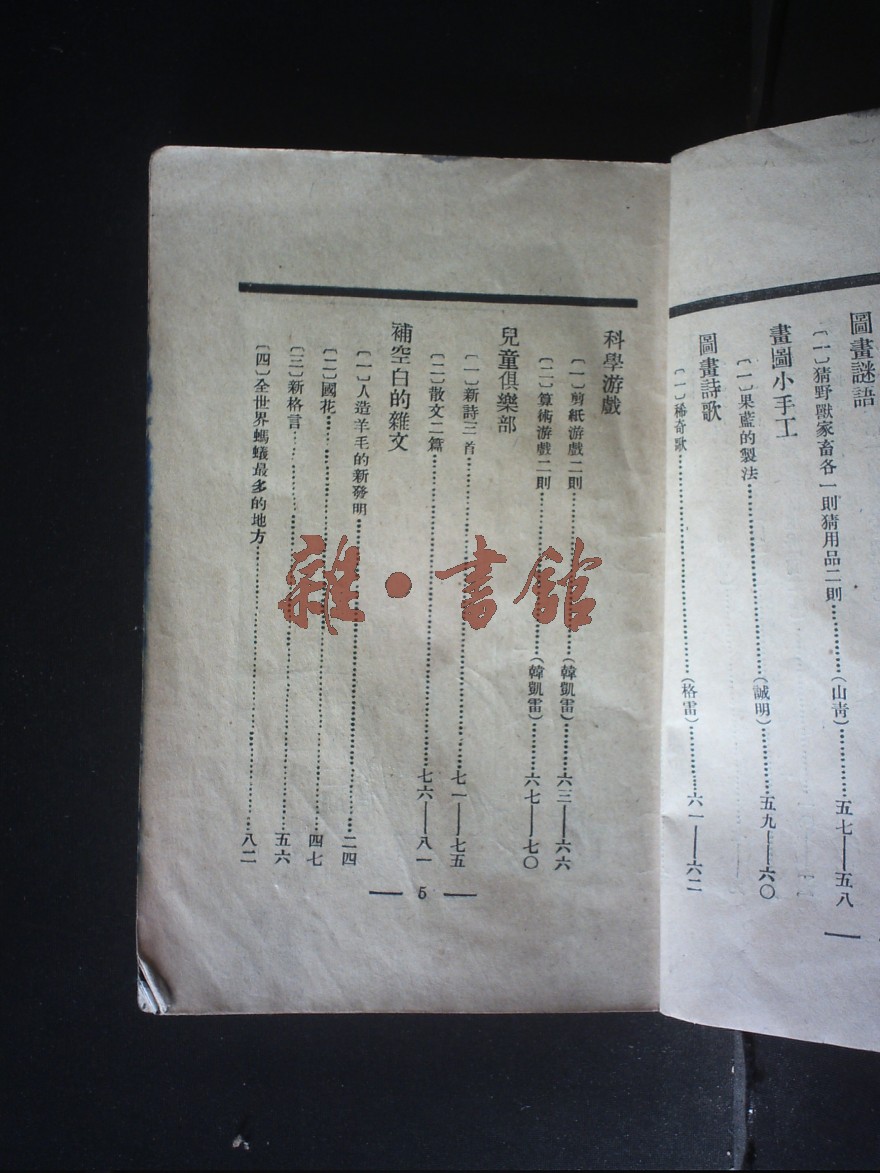 圖畫謎語
〔一〕猜野獸家畜各一則猜用品二則……(山靑)……五七——五八
畫圖小手工
〔一〕果藍的製法……(誠明)……五九——六〇
圖畫詩歌
〔一〕稀奇歌……(格雷)……六一——六二
科學游戲
〔一〕剪紙游戲二則……(韓凱雷)……六三——六六
〔二〕算術游戲二則……(韓凱雷)……六七——七〇
兒童俱樂部
〔一〕新詩三首……七一——七五
〔二〕散文二篇……七六——八一
補空白的雜文
〔一〕人造羊毛的新發明……二四
〔二〕國花……四七
〔三〕新格言……五六
〔四〕全世界螞蟻最多的地方……八二
— 5 —
雜·書館